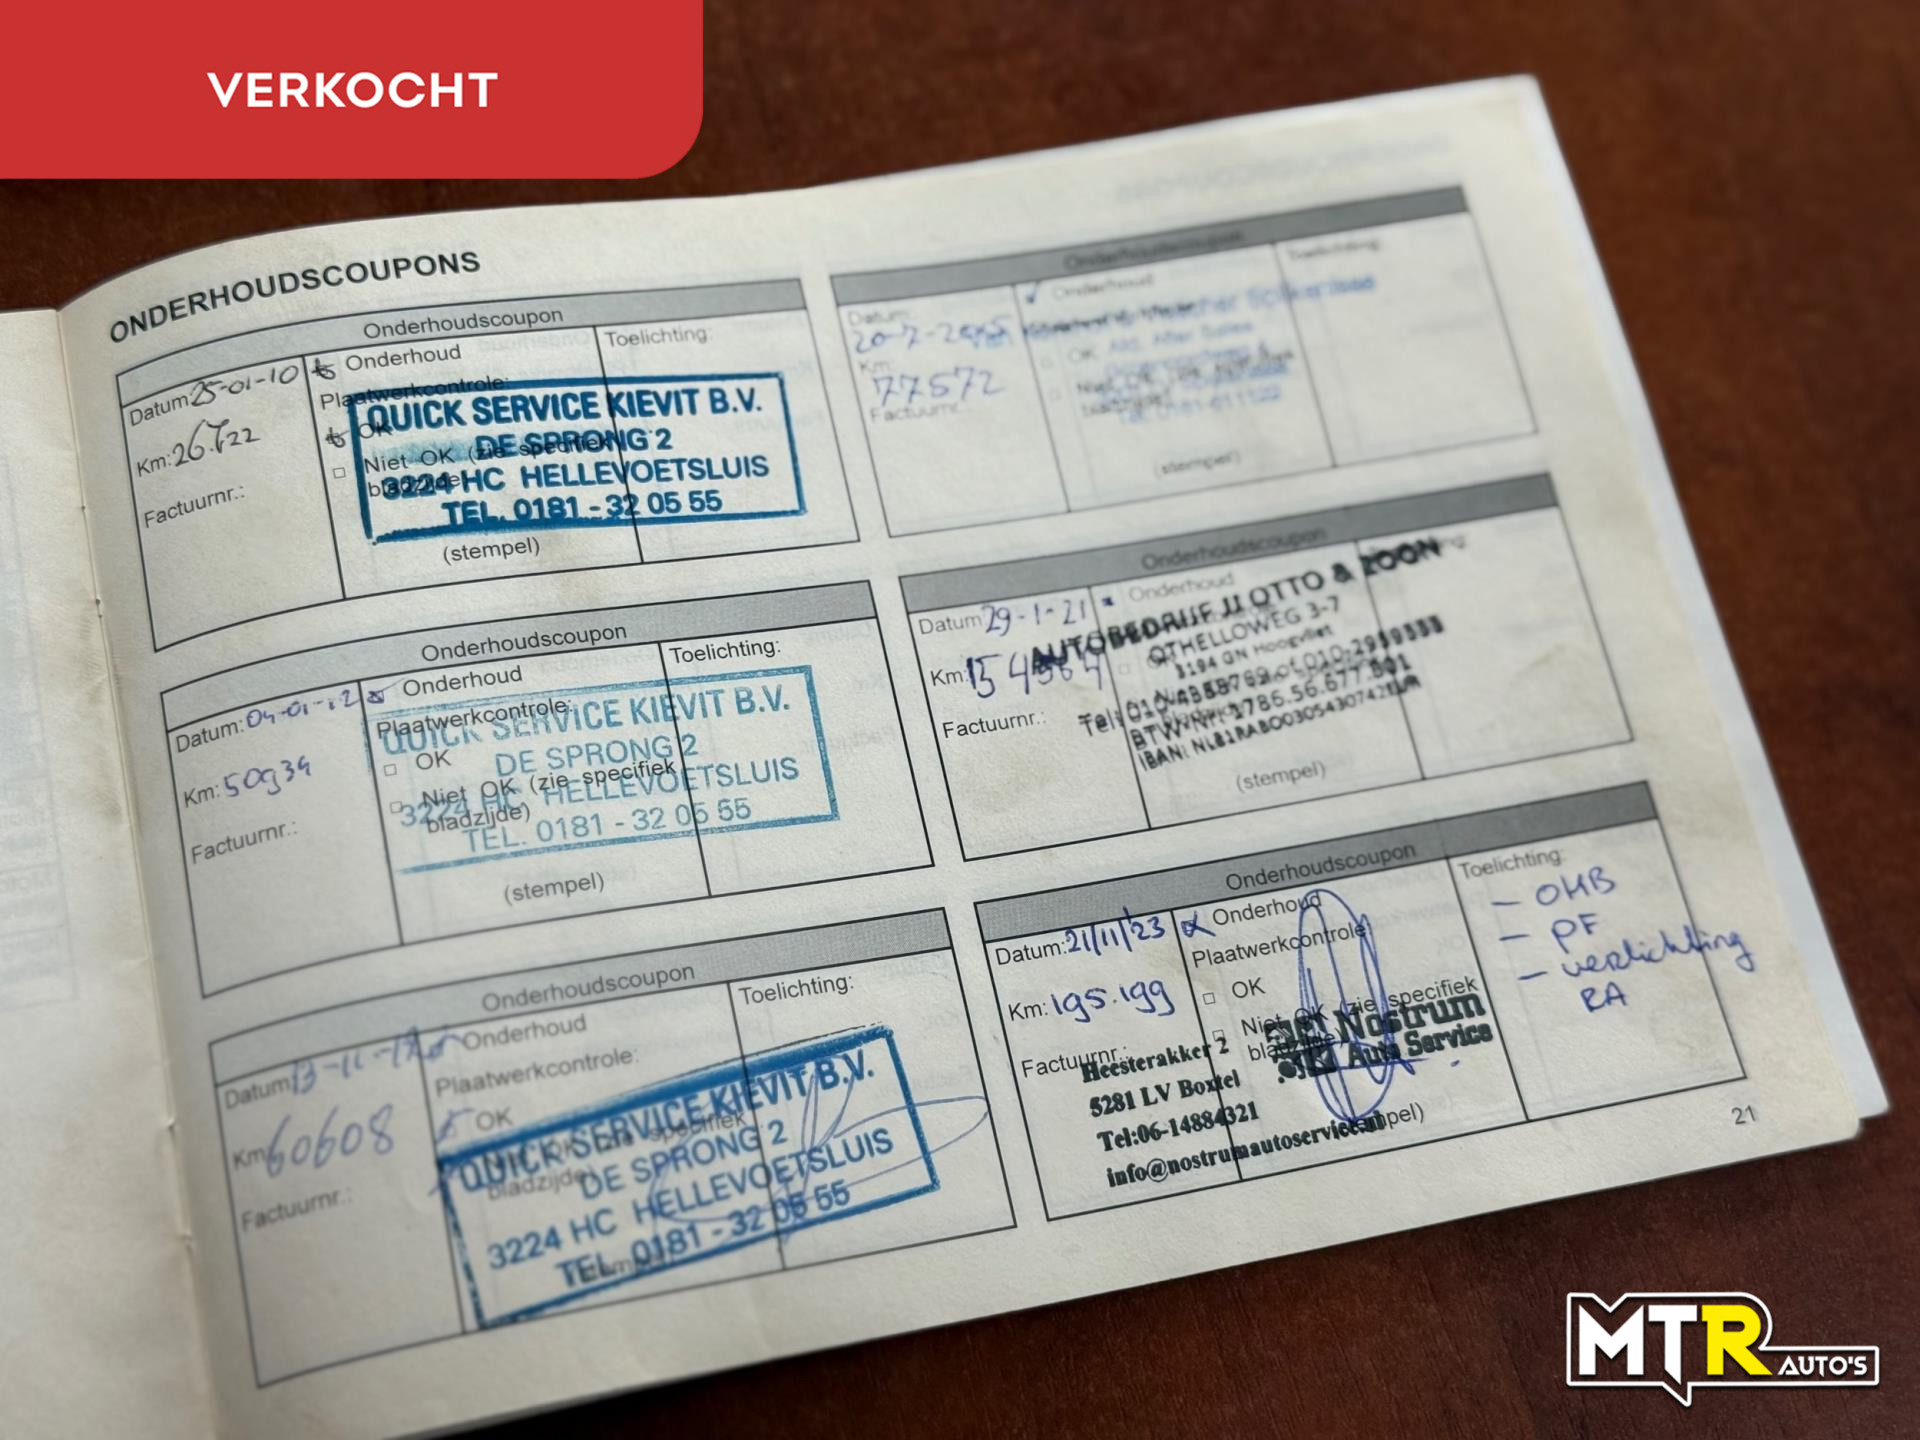 VERKOCHT
ONDERHOUDSCOUPONS
Onderhoudscoupon
Datum: 25-01-10
Onderhoud
Toelichting:
Plaatwerkcontrole:
Km:
OK
Niet OK (zie specifiek
bladzijde)
Factuurnr.:
QUICK SERVICE KIEVIT B.V.
DE SPRONG 2
3224 HC HELLEVOETSLUIS
TEL. 0181 - 32 05 55
(stempel)
Onderhoudscoupon
Datum: 04-01-12
Onderhoud
Toelichting:
Plaatwerkcontrole:
Km: 50934
OK
Niet OK (zie specifiek
bladzijde)
Factuurnr.:
QUICK SERVICE KIEVIT B.V.
DE SPRONG 2
3224 HC HELLEVOETSLUIS
TEL. 0181 - 32 05 55
(stempel)
Onderhoudscoupon
Datum: 13-11-
Onderhoud
Toelichting:
Plaatwerkcontrole:
Km: 60608
OK
bladzijde)
Factuurnr.:
QUICK SERVICE KIEVIT B.V.
DE SPRONG 2
3224 HC HELLEVOETSLUIS
TEL. 0181 - 32 05 55
Onderhoudscoupon
Datum:
Onderhoud
Toelichting:
20-7-
Km:
77572
Factuurnr.:
(stempel)
Onderhoudscoupon
Datum: 29-1-21
Onderhoud
Km:
Factuurnr.:
AUTOBEDRIJF JJ OTTO & ZOON
OTHELLOWEG 3-7
3194 GN Hoogvliet
(stempel)
Onderhoudscoupon
Datum: 21/11/23
Onderhoud
Toelichting:
Plaatwerkcontrole:
Km: 195.199
OK
Niet OK (zie specifiek
bladzijde)
Factuurnr.:
- OHB
- PF
- verlichting
RA
Nostrum
Auto Service
Heesterakker 2
5281 LV Boxtel
Tel:06-14884321
info@nostrumautoservice.nl
21
MTR AUTO'S